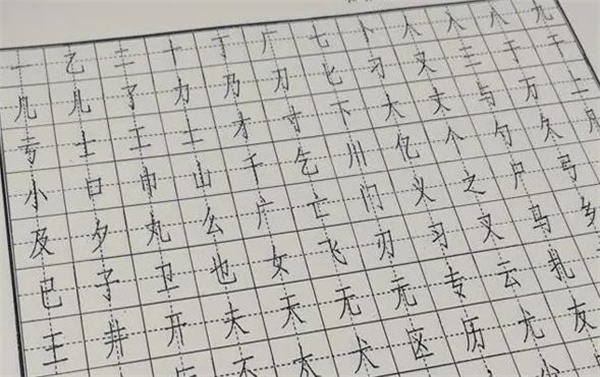 一 乙 二 十 丁 厂 七 卜 人 入 八 九
几 儿 了 力 乃 刀 匕 刁 又 三 于 干
亏 士 工 土 才 寸 下 大 丈 与 万 上
小 口 巾 山 千 乞 川 亿 个 勺 久 凡
及 夕 丸 么 广 亡 门 义 之 尸 弓
巳 子 卫 也 女 飞 刃 习 叉 马 乡
王 井 开 夫 天 无 元 专 云 扎
不 太 犬 区 历 尤 友